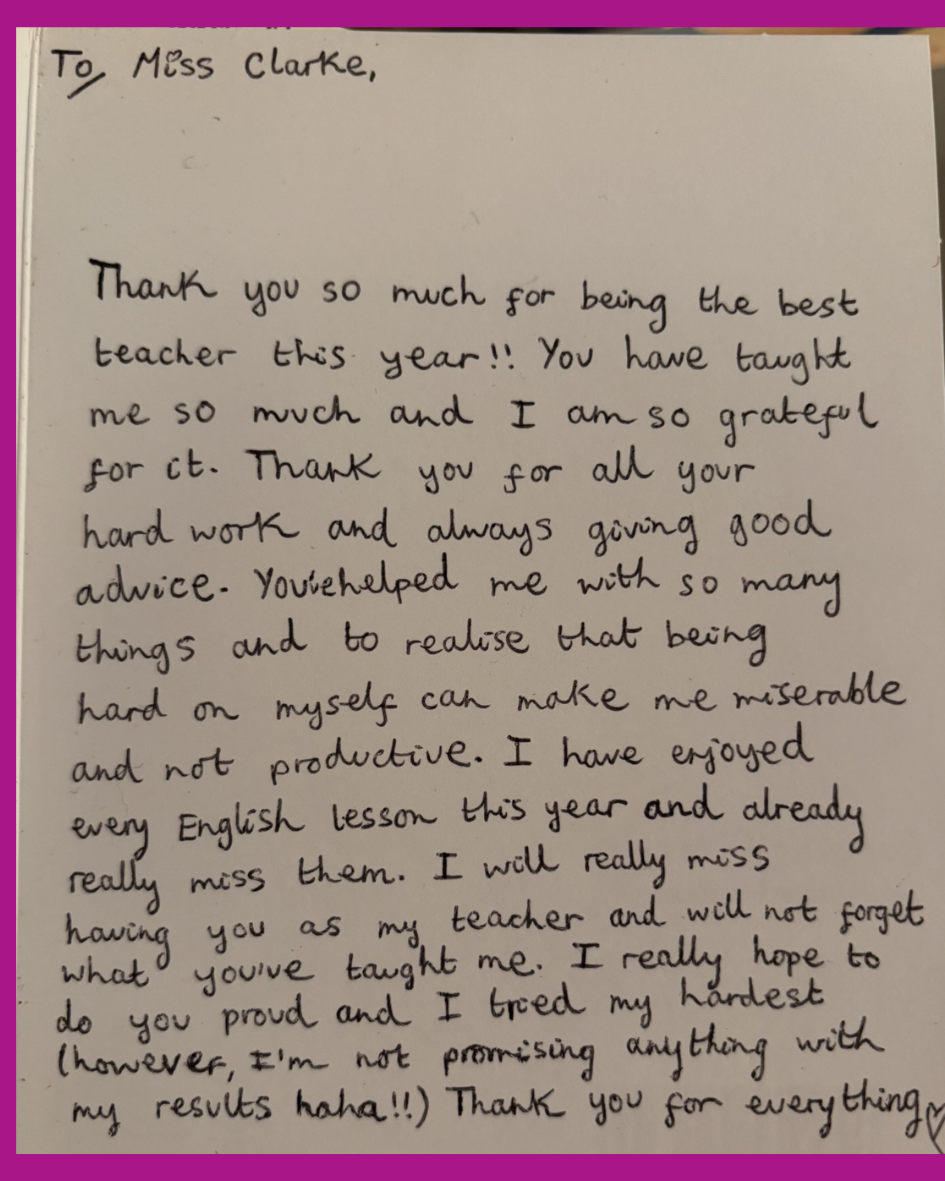 To, Miss Clarke,
Thank you so much for being the best
teacher this year!! You have taught
me so much and I am so grateful
for it. Thank you for all your
hard work and always giving good
advice. You've helped me with so many
things and to realise that being
hard on myself can make me miserable
and not productive. I have enjoyed
every English lesson this year and already
really miss them. I will really miss
having you as my teacher and will not forget
what you've taught me. I really hope to
do you proud and I tried my hardest
(however, I'm not promising anything with
my results haha!!) Thank you for everything